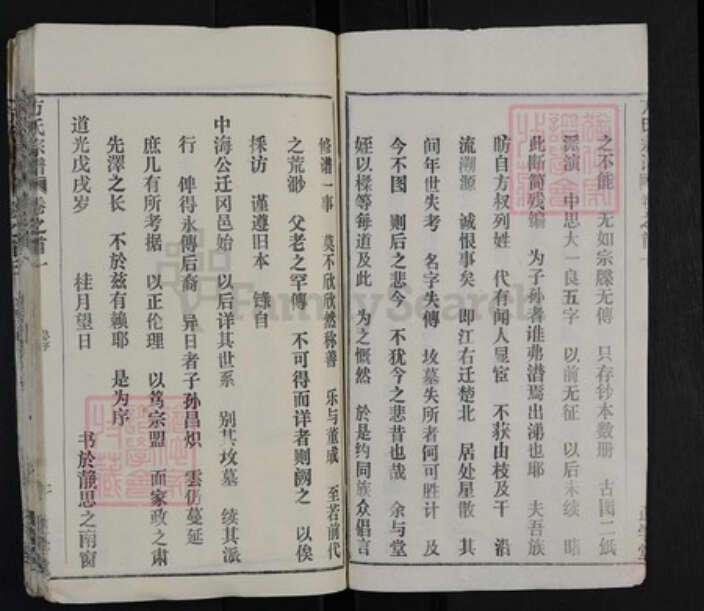 之不能 无如宗牒无傳 只存钞本数册 古图二紙
派演 中思大一良五字 以前无征 以后未续 睹
此断简残编 为子孙者谁弗潜焉出涕也耶 夫吾族
昉自方权列姓 代有闻人显宦 不获山枝及干 沿
流溯源 诚恨事矣 即江右迁楚北 居处星散 其
间年世失考 名字失傳 坟墓失所者何可胜计 及
今不图 则后之悲今 不犹今之悲昔也哉 余与堂
姪以樑等每道及此 为之慨然 於是约同族众倡言
修谱一事 莫不欣欣然称善 乐与董成 至若前代
之荒渺 父老之罕傳 不可得而详者则阙之 以俟
採访 谨遵旧本 录自
中海公迁冈邑始 以后详其世系 别其坟墓 续其派
行 俾得永傳后裔 异日者子孙昌炽 雲仍蔓延
庶几有所考据 以正伦理 以笃宗盟 而家政之肃
先澤之长 不於兹有赖耶 是为序
道光戊戌岁 桂月望日 书於静思之南窗
方氏宗谱 卷之首一
FamilySearch